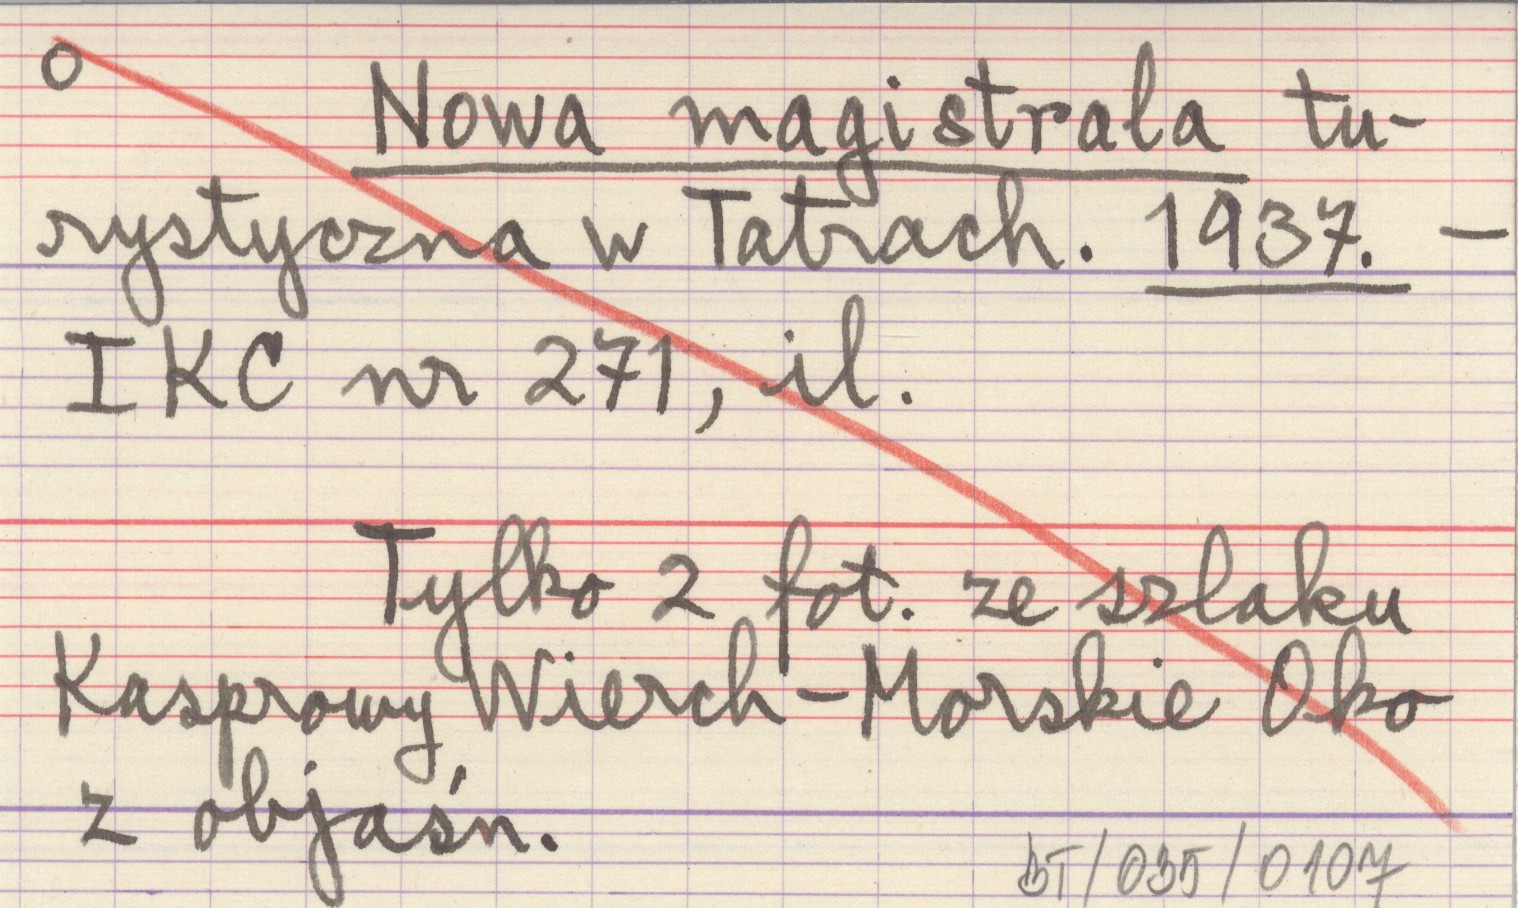 O
Nowa magistrala tu-
rystyczna w Tatrach. 1937. —
IKC nr 271, il.
Tylko 2 fot. ze szlaku
Kasprowy Wierch-Morskie Oko
z objaśn.
BT/035/0107